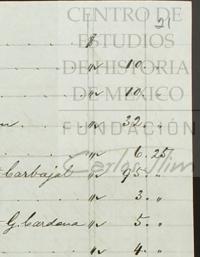 CENTRO DE
ESTUDIOS
DE HISTORIA
DE MEXICO
FUNDACIÓN
Carlos Slim
21
$
" 10. "
" 10. "
" 32. "
" 6. 25
Carbajal " 95. "
" 3. "
G. Cardena " 5. "
" 4. "